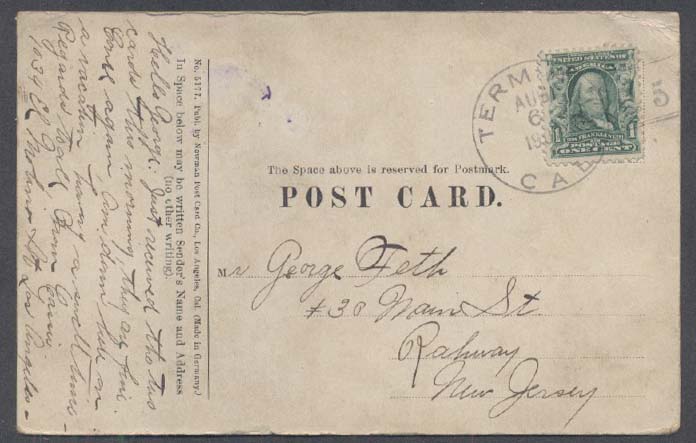 Hello George. Just received the two
cards this morning, they are fine.
Card again am down here on
a vacation having a swell time.
Regards to all, Ben C
1034 E. Los Angeles.
In Space below may be written Sender's Name and Address
(no other writing)
No. 5177. Publ. by Newman Post Card Co., Los Angeles, Cal. (Made in Germany.)
TERM
AUG
6
CAL
5
UNITED STATES OF
AMERICA
FRANKLIN
POSTAGE
1 ONE CENT 1
The Space above is reserved for Postmark.
POST CARD.
Mr George Feth
#30 Main St
Rahway
New Jersey